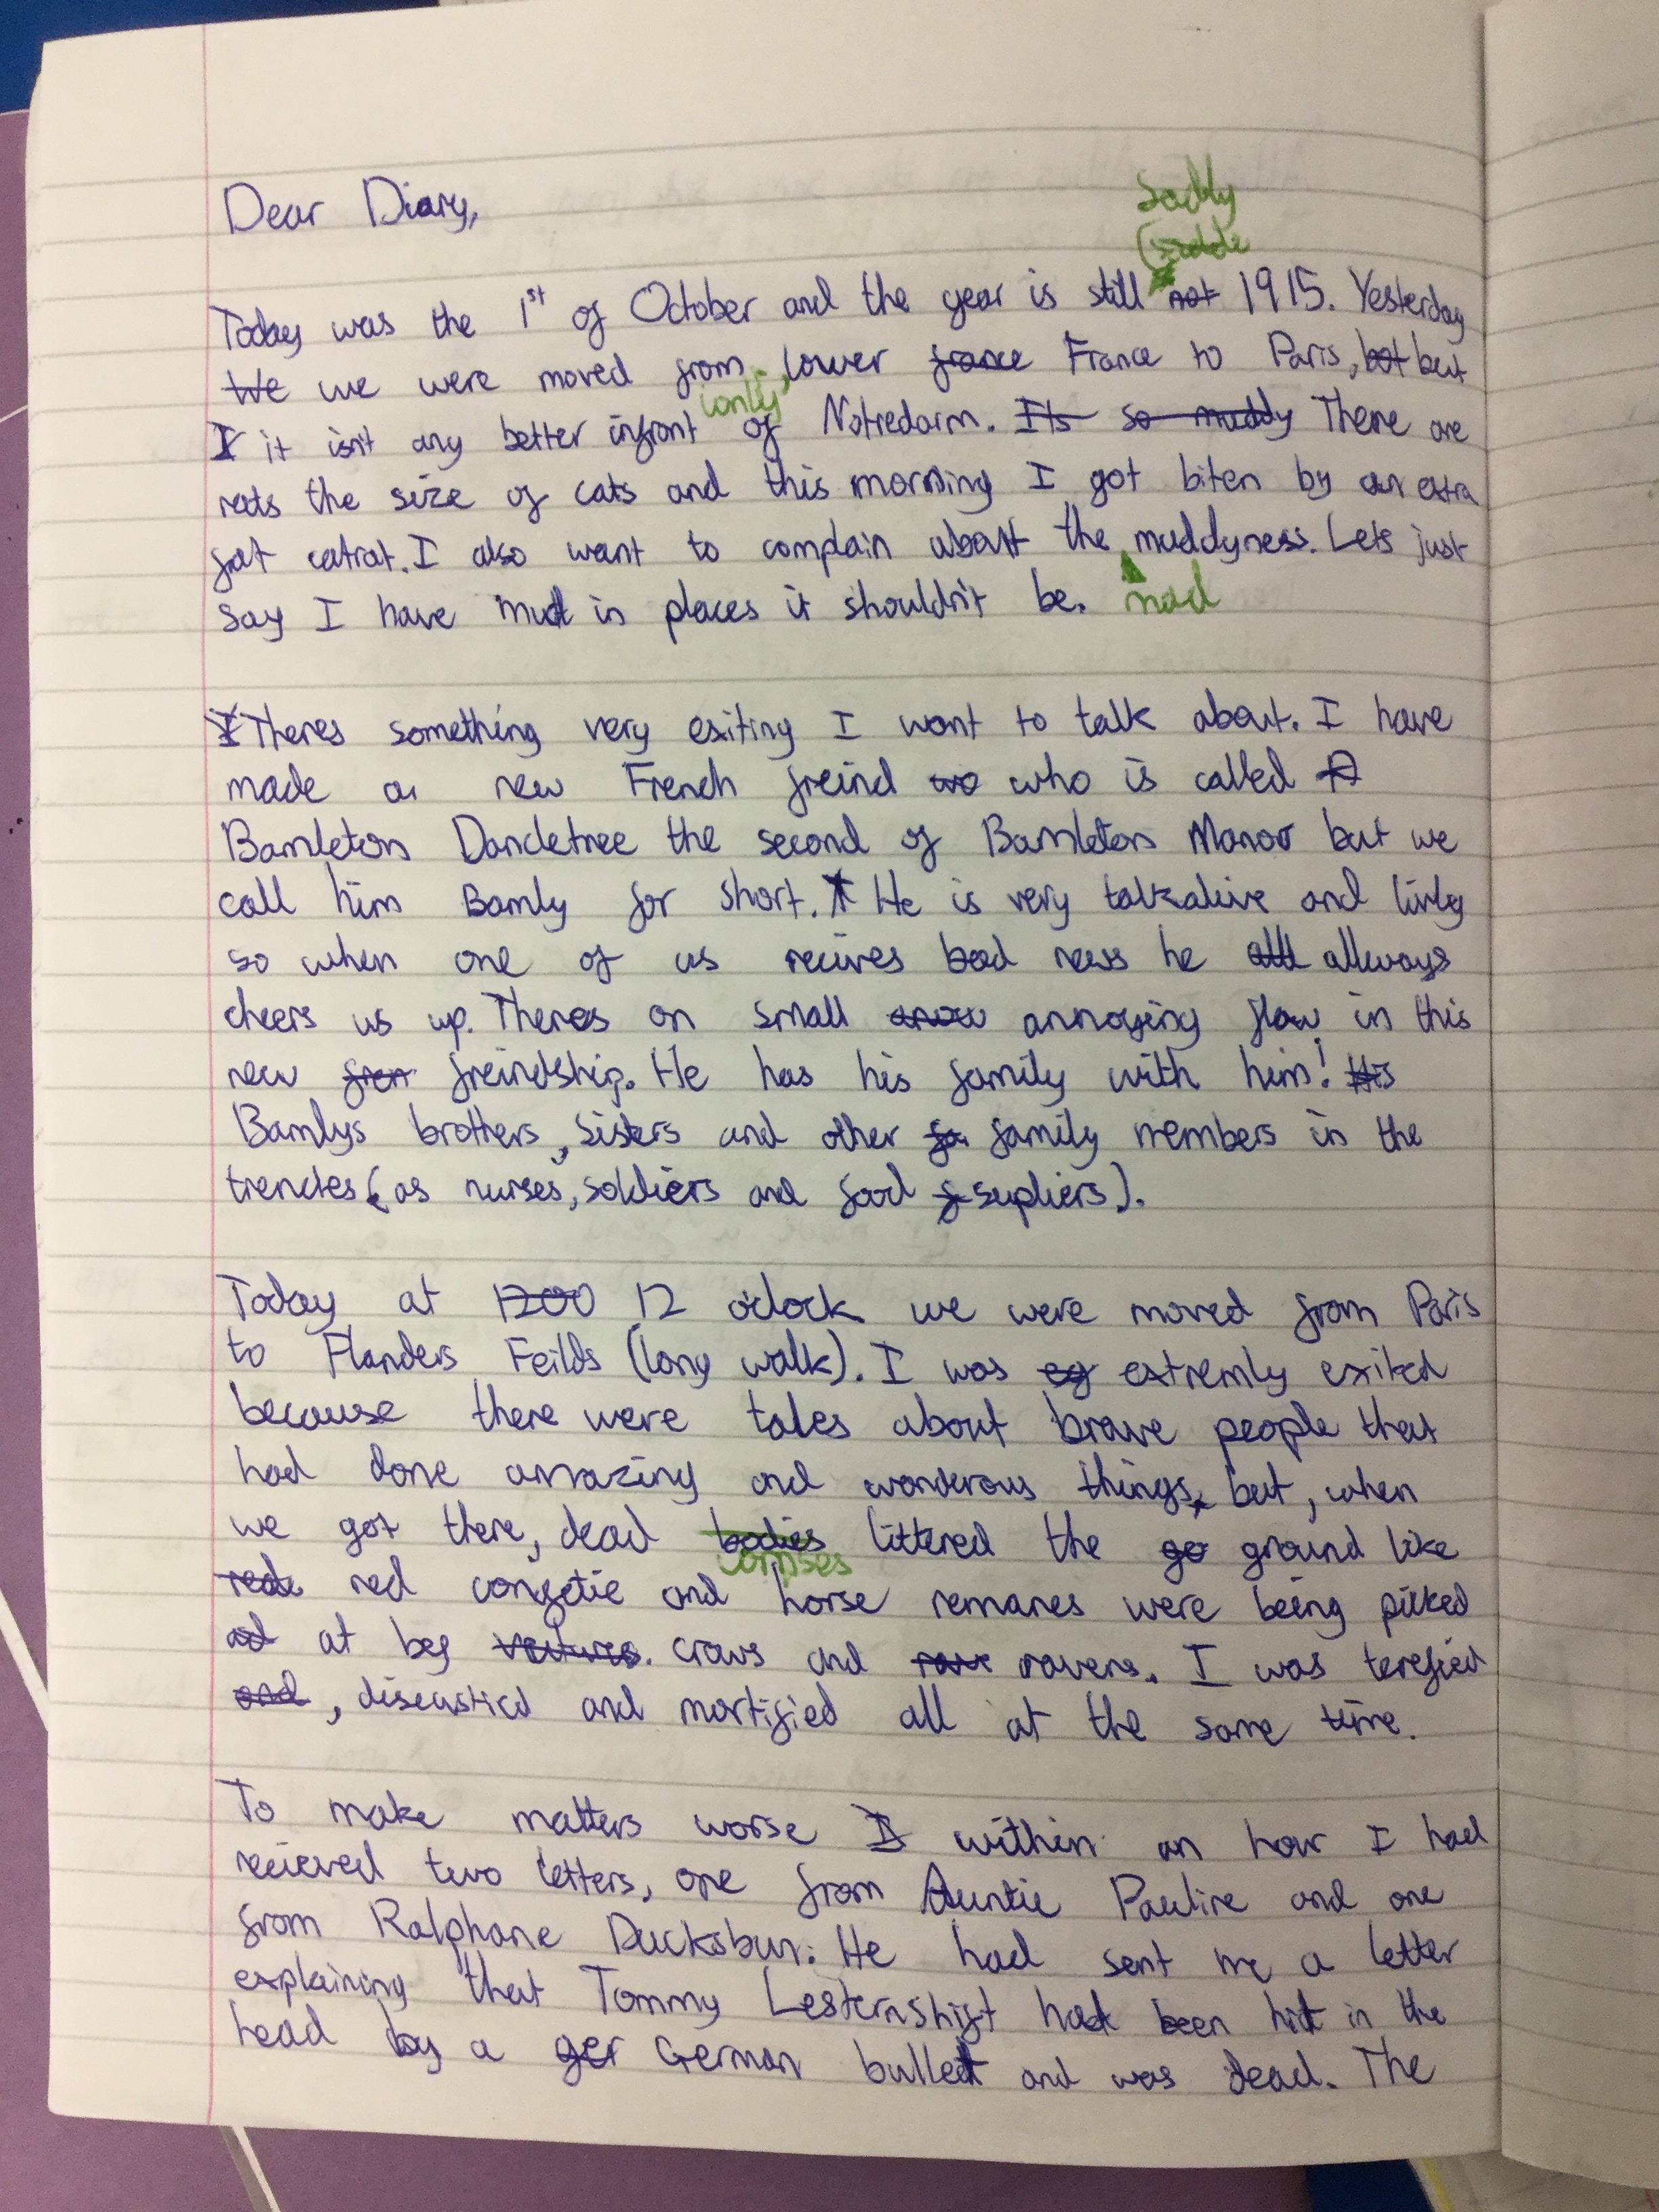 Dear Diary,
Sadly
Today was the 1st of October and the year is still not 1915. Yesterday
We we were moved from lower france France to Paris, bot but
I it isn't any better infront of Notredarm. Its so muddy There are
only
rats the size of cats and this morning I got biten by an extra
fat catrat. I also want to complain about the muddyness. Lets just
say I have mud in places it shouldn't be. mad
I Theres something very exiting I want to talk about. I have
made a new French freind wo who is called
Bamleton Dandetree the second of Bamleton Manor but we
call him Bamly for short. He is very talkative and livly
so when one of us recives bad news he alll allways
cheers us up. Theres on small anow annoying flaw in this
new fren freindship. He has his family with him! His
Bamlys brothers, sisters and other fa family members in the
trenches (as nurses, soldiers and food f supliers).
Today at 1200 12 o'clock we were moved from Paris
to Flanders Feilds (long walk). I was eg extremly exited
because there were tales about brave people that
had done amazing and wonderous things, but, when
we got there, dead bodies littered the go ground like
corpses
red red confetie and horse remanes were being picked
at at bey vultures. crows and rave ravens. I was terefied
and, discusticd and mortified all at the same time.
To make matters worse I within an hour I had
recieved two letters, one from Auntie Pauline and one
from Ralphane Ducksbun. He had sent me a letter
explaining that Tommy Lesternshift had been hit in the
head by a ger German bullet and was dead. The